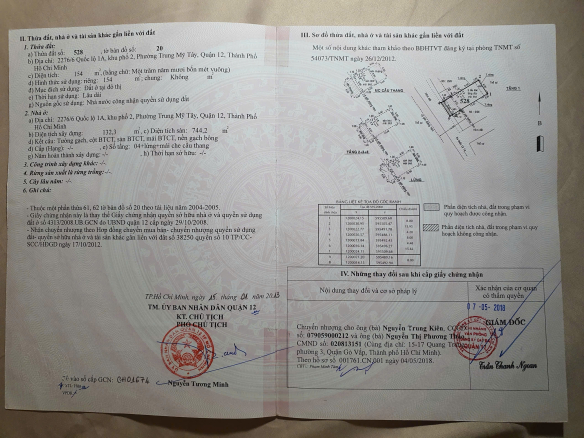 II. Thửa đất, nhà ở và tài sản khác gắn liền với đất
1. Thửa đất:
a) Thửa đất số: 528 , tờ bản đồ số: 20
b) Địa chỉ: 2276/6 Quốc lộ 1A, khu phố 2, Phường Trung Mỹ Tây, Quận 12, Thành Phố
Hồ Chí Minh
c) Diện tích: 154 m², (bằng chữ: Một trăm năm mươi bốn mét vuông)
d) Hình thức sử dụng: riêng: 154 m², chung: Không m²
đ) Mục đích sử dụng: Đất ở tại đô thị
e) Thời hạn sử dụng: Lâu dài
g) Nguồn gốc sử dụng: Nhà nước công nhận quyền sử dụng đất
2. Nhà ở:
a) Địa chỉ: 2276/6 Quốc lộ 1A, khu phố 2, Phường Trung Mỹ Tây, Quận 12, Thành Phố
Hồ Chí Minh
b) Diện tích xây dựng: 132,3 m², c) Diện tích sàn: 744,2 m²
d) Kết cấu: Tường gạch, cột BTCT, sàn BTCT, mái BTCT, nền gạch bông
đ) Cấp (Hạng): -/- e) Số tầng: 04+lửng+mái che cầu thang
g) Năm hoàn thành xây dựng: -/- h) Thời hạn sở hữu: -/-
3. Công trình xây dựng khác: -/-
4. Rừng sản xuất là rừng trồng: -/-
5. Cây lâu năm: -/-
6. Ghi chú:
- Thuộc một phần thửa 61, 62 tờ bản đồ số 20 theo tài liệu năm 2004-2005.
- Giấy chứng nhận này là thay thế Giấy chứng nhận quyền sở hữu nhà ở và quyền sử dụng
đất ở số 4313/2008.UB.GCN do UBND quận 12 cấp ngày 29/10/2008.
- Nhận chuyển nhượng theo Hợp đồng chuyển mua bán- chuyển nhượng quyền sử dụng
đất- quyền sở hữu nhà ở và tài sản khác gắn liền với đất số 38250 quyển số 10 TP/CC-
SCC/HĐGD ngày 17/10/2012.
TP.Hồ Chí Minh, ngày 15 tháng 01 năm 2013
TM. ỦY BAN NHÂN DÂN QUẬN 12
KT. CHỦ TỊCH
PHÓ CHỦ TỊCH
Nguyễn Tương Minh
Số vào sổ cấp GCN: CH01674
III. Sơ đồ thửa đất, nhà ở và tài sản khác gắn liền với đất
Một số nội dung khác tham khảo theo BĐHTVT đăng ký tại phòng TNMT số
54073/TNMT ngày 26/12/2012.
MÁI CHE CẦU THANG
TẦNG 1
528
B
TẦNG 2-3-4
LỬNG
BẢNG LIỆT KÊ TỌA ĐỘ GÓC RANH
Phần diện tích nhà, đất phù hợp
quy hoạch được công nhận.
Phần diện tích nhà, đất trong phạm vi
quy hoạch không công nhận.
IV. Những thay đổi sau khi cấp giấy chứng nhận
Nội dung thay đổi và cơ sở pháp lý
Xác nhận của cơ quan
có thẩm quyền
07-05-2018
GIÁM ĐỐC
Chuyển nhượng cho ông (bà) Nguyễn Trung Kiên,
số: 079059000212 và ông (bà) Nguyễn Thị Phương
CMND số: 020813151 (Cùng địa chỉ: 15-17 Quang Trung,
phường 3, Quận Gò Vấp, Thành phố Hồ Chí Minh).
Theo hồ sơ 001761.CN.001 ngày 04/05/2018.
Trần Thanh Ngoan